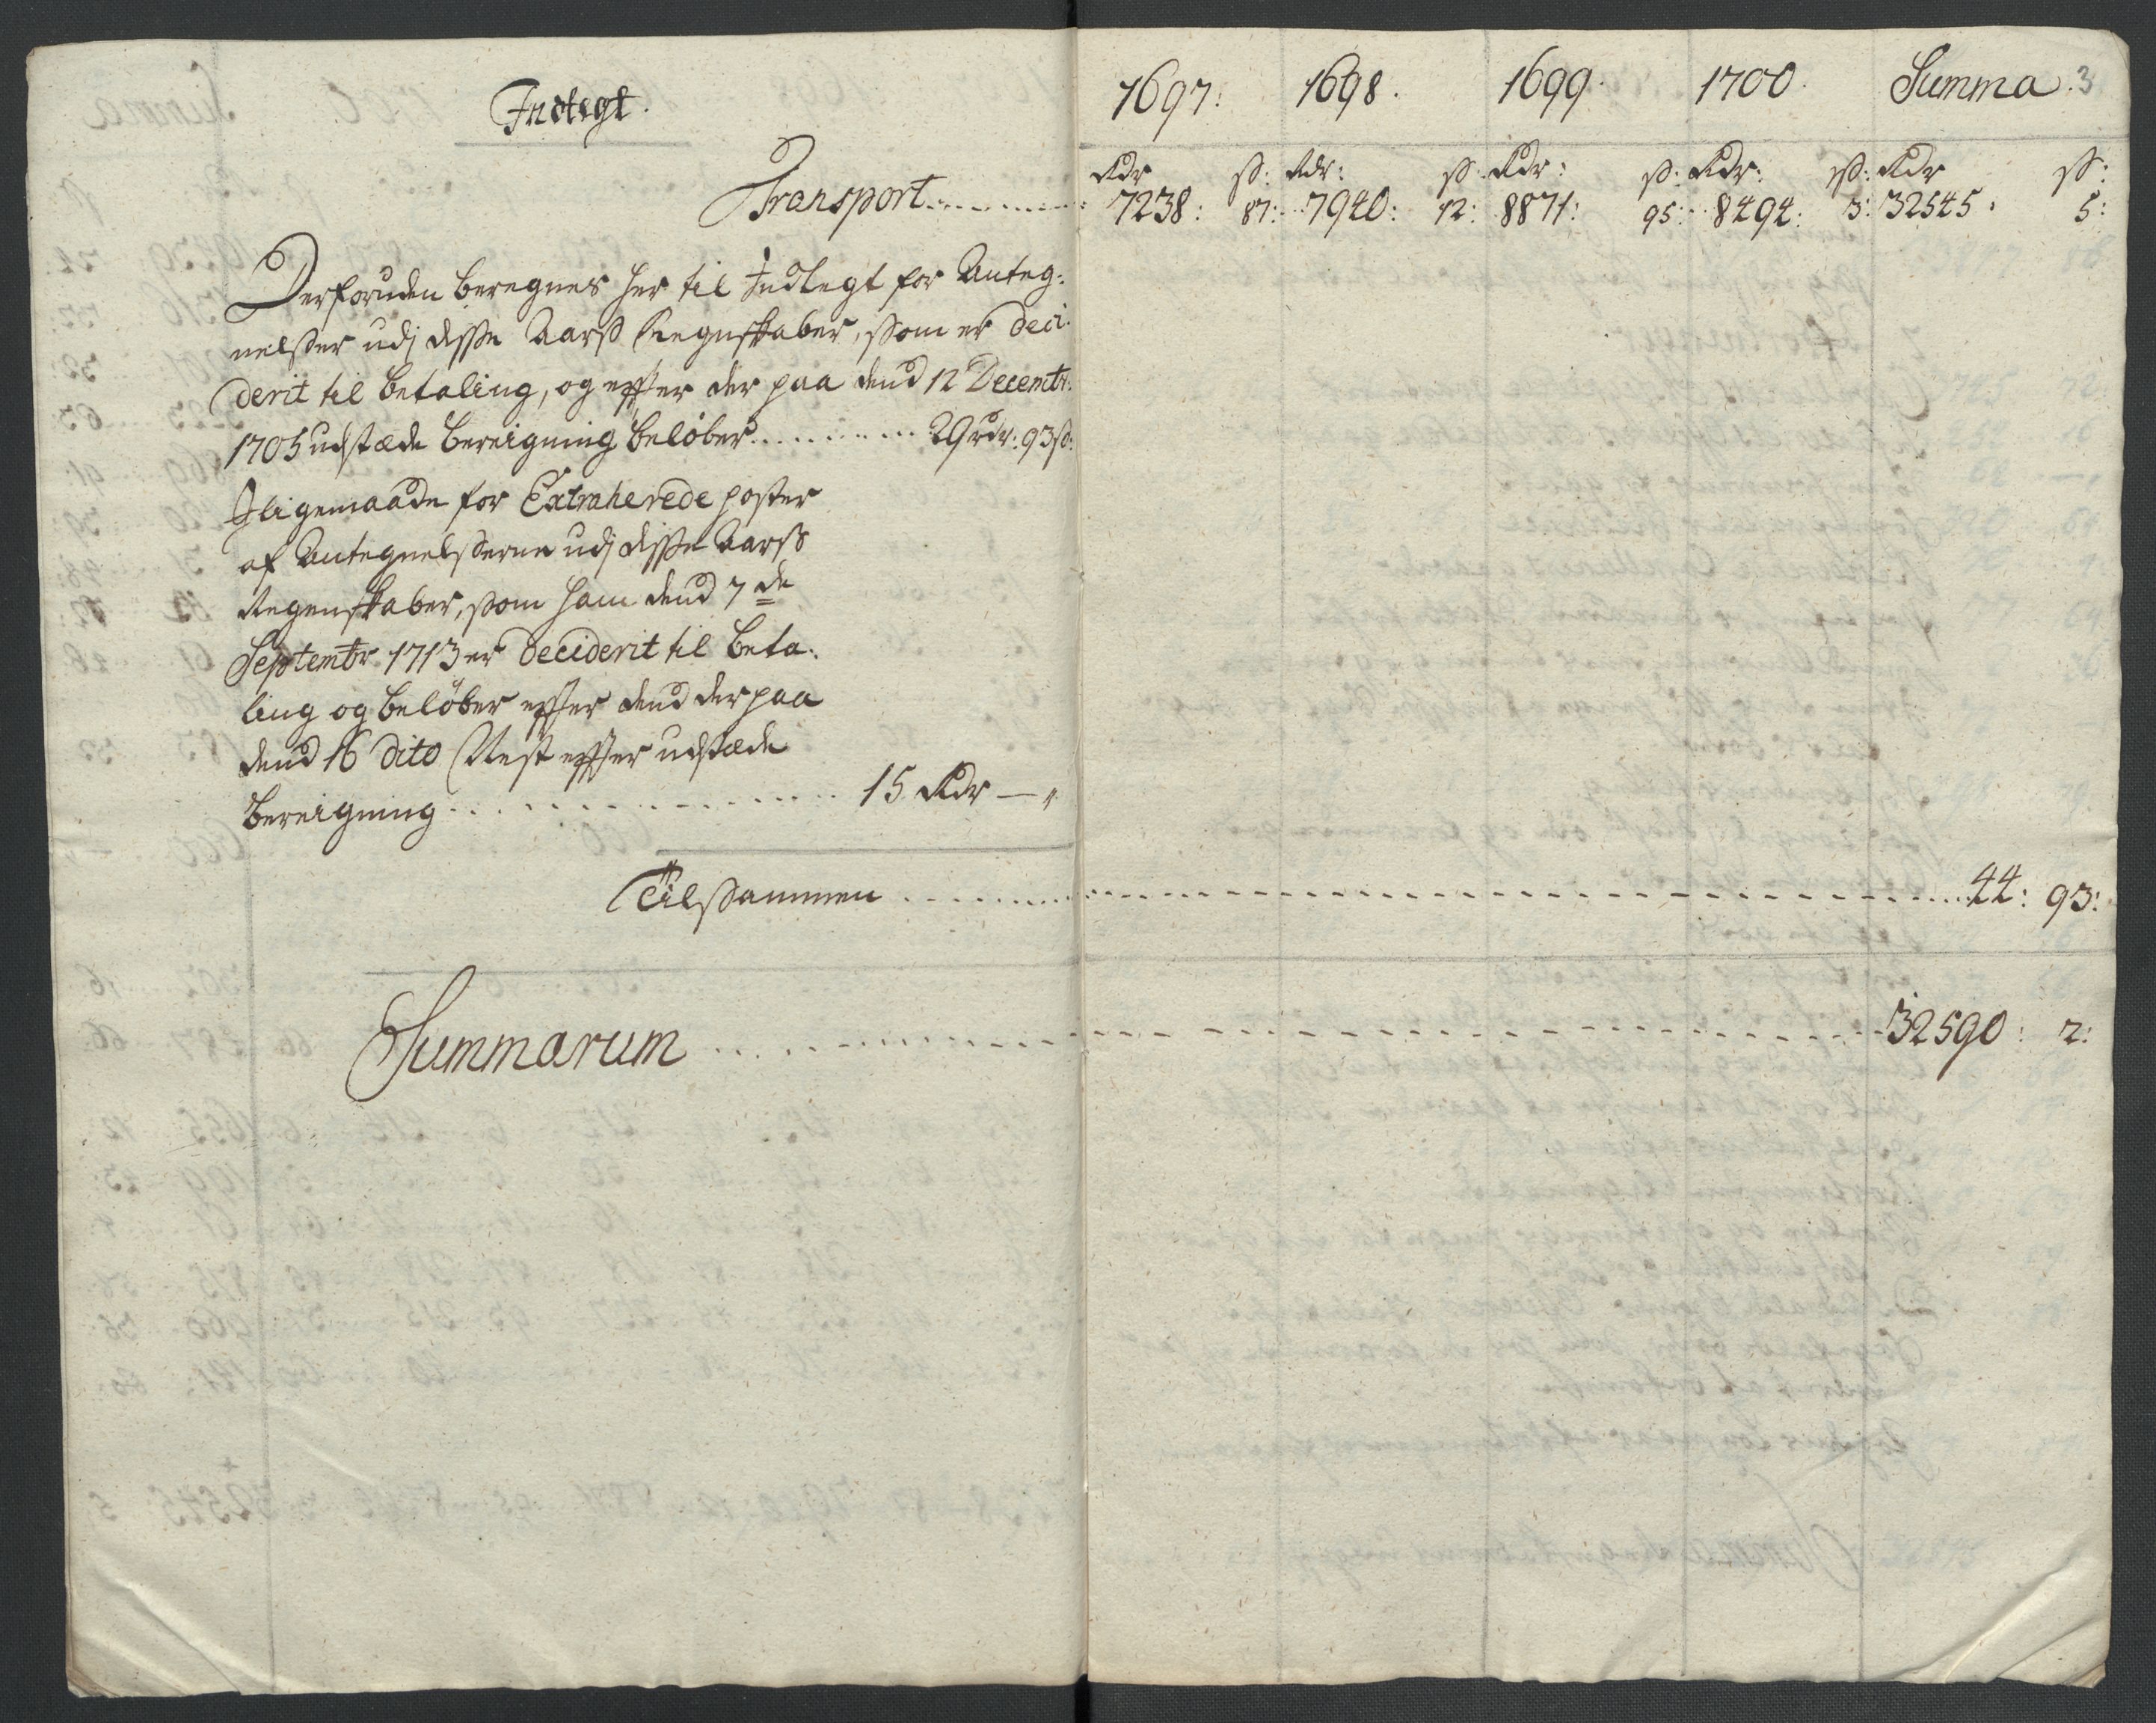 Indtegt.
1697: 1698. 1699. 1700. Summa. 3
Rdr ß: Rdr: ß: Rdr: ß: Rdr: ß: Rdr ß:
Transport 7238: 87: 7940: 12: 8871: 95: 8494: 3: 32545: 5:
Derforuden beregnes her til Indtegt for Anteg-
nelßer udj disse Aarß Regnskaber, ßom er deci-
derit til betaling, og effter der paa dend 12 Decembr:
1705 udstæde bereigning beløber 29 rdr: 93 ß:
Jligemaade for Extraherede poster
af Antegnelßerne udj disse Aarß
Regenskaber, ßom ham dend 7de
Septembr 1713 er deciderit til beta-
ling og beløber effter dend der paa
dend 16 dito Nest effter udstæde
bereigning 15 Rdr —„
Tilßammen 44: 93:
Summarum 32590: 2: